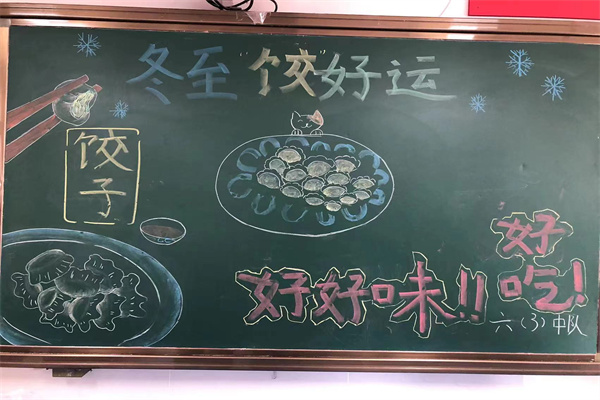 冬至"饺"好运
饺子
好好味!!
好吃!
六(3)中队